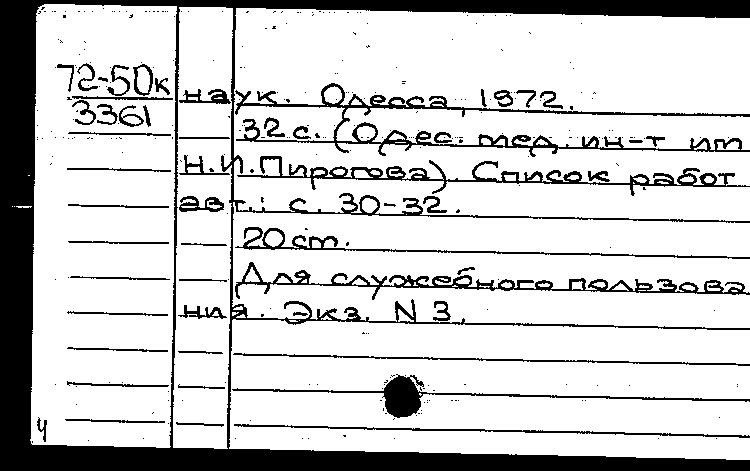 72-50к
3361
наук. Одесса, 1972.
32 с. (Одес. мед. ин-т им
Н.И.Пирогова). Список работ
авт.: с. 30-32.
20 см.
Для служебного пользова
ния. Экз. N 3.
4